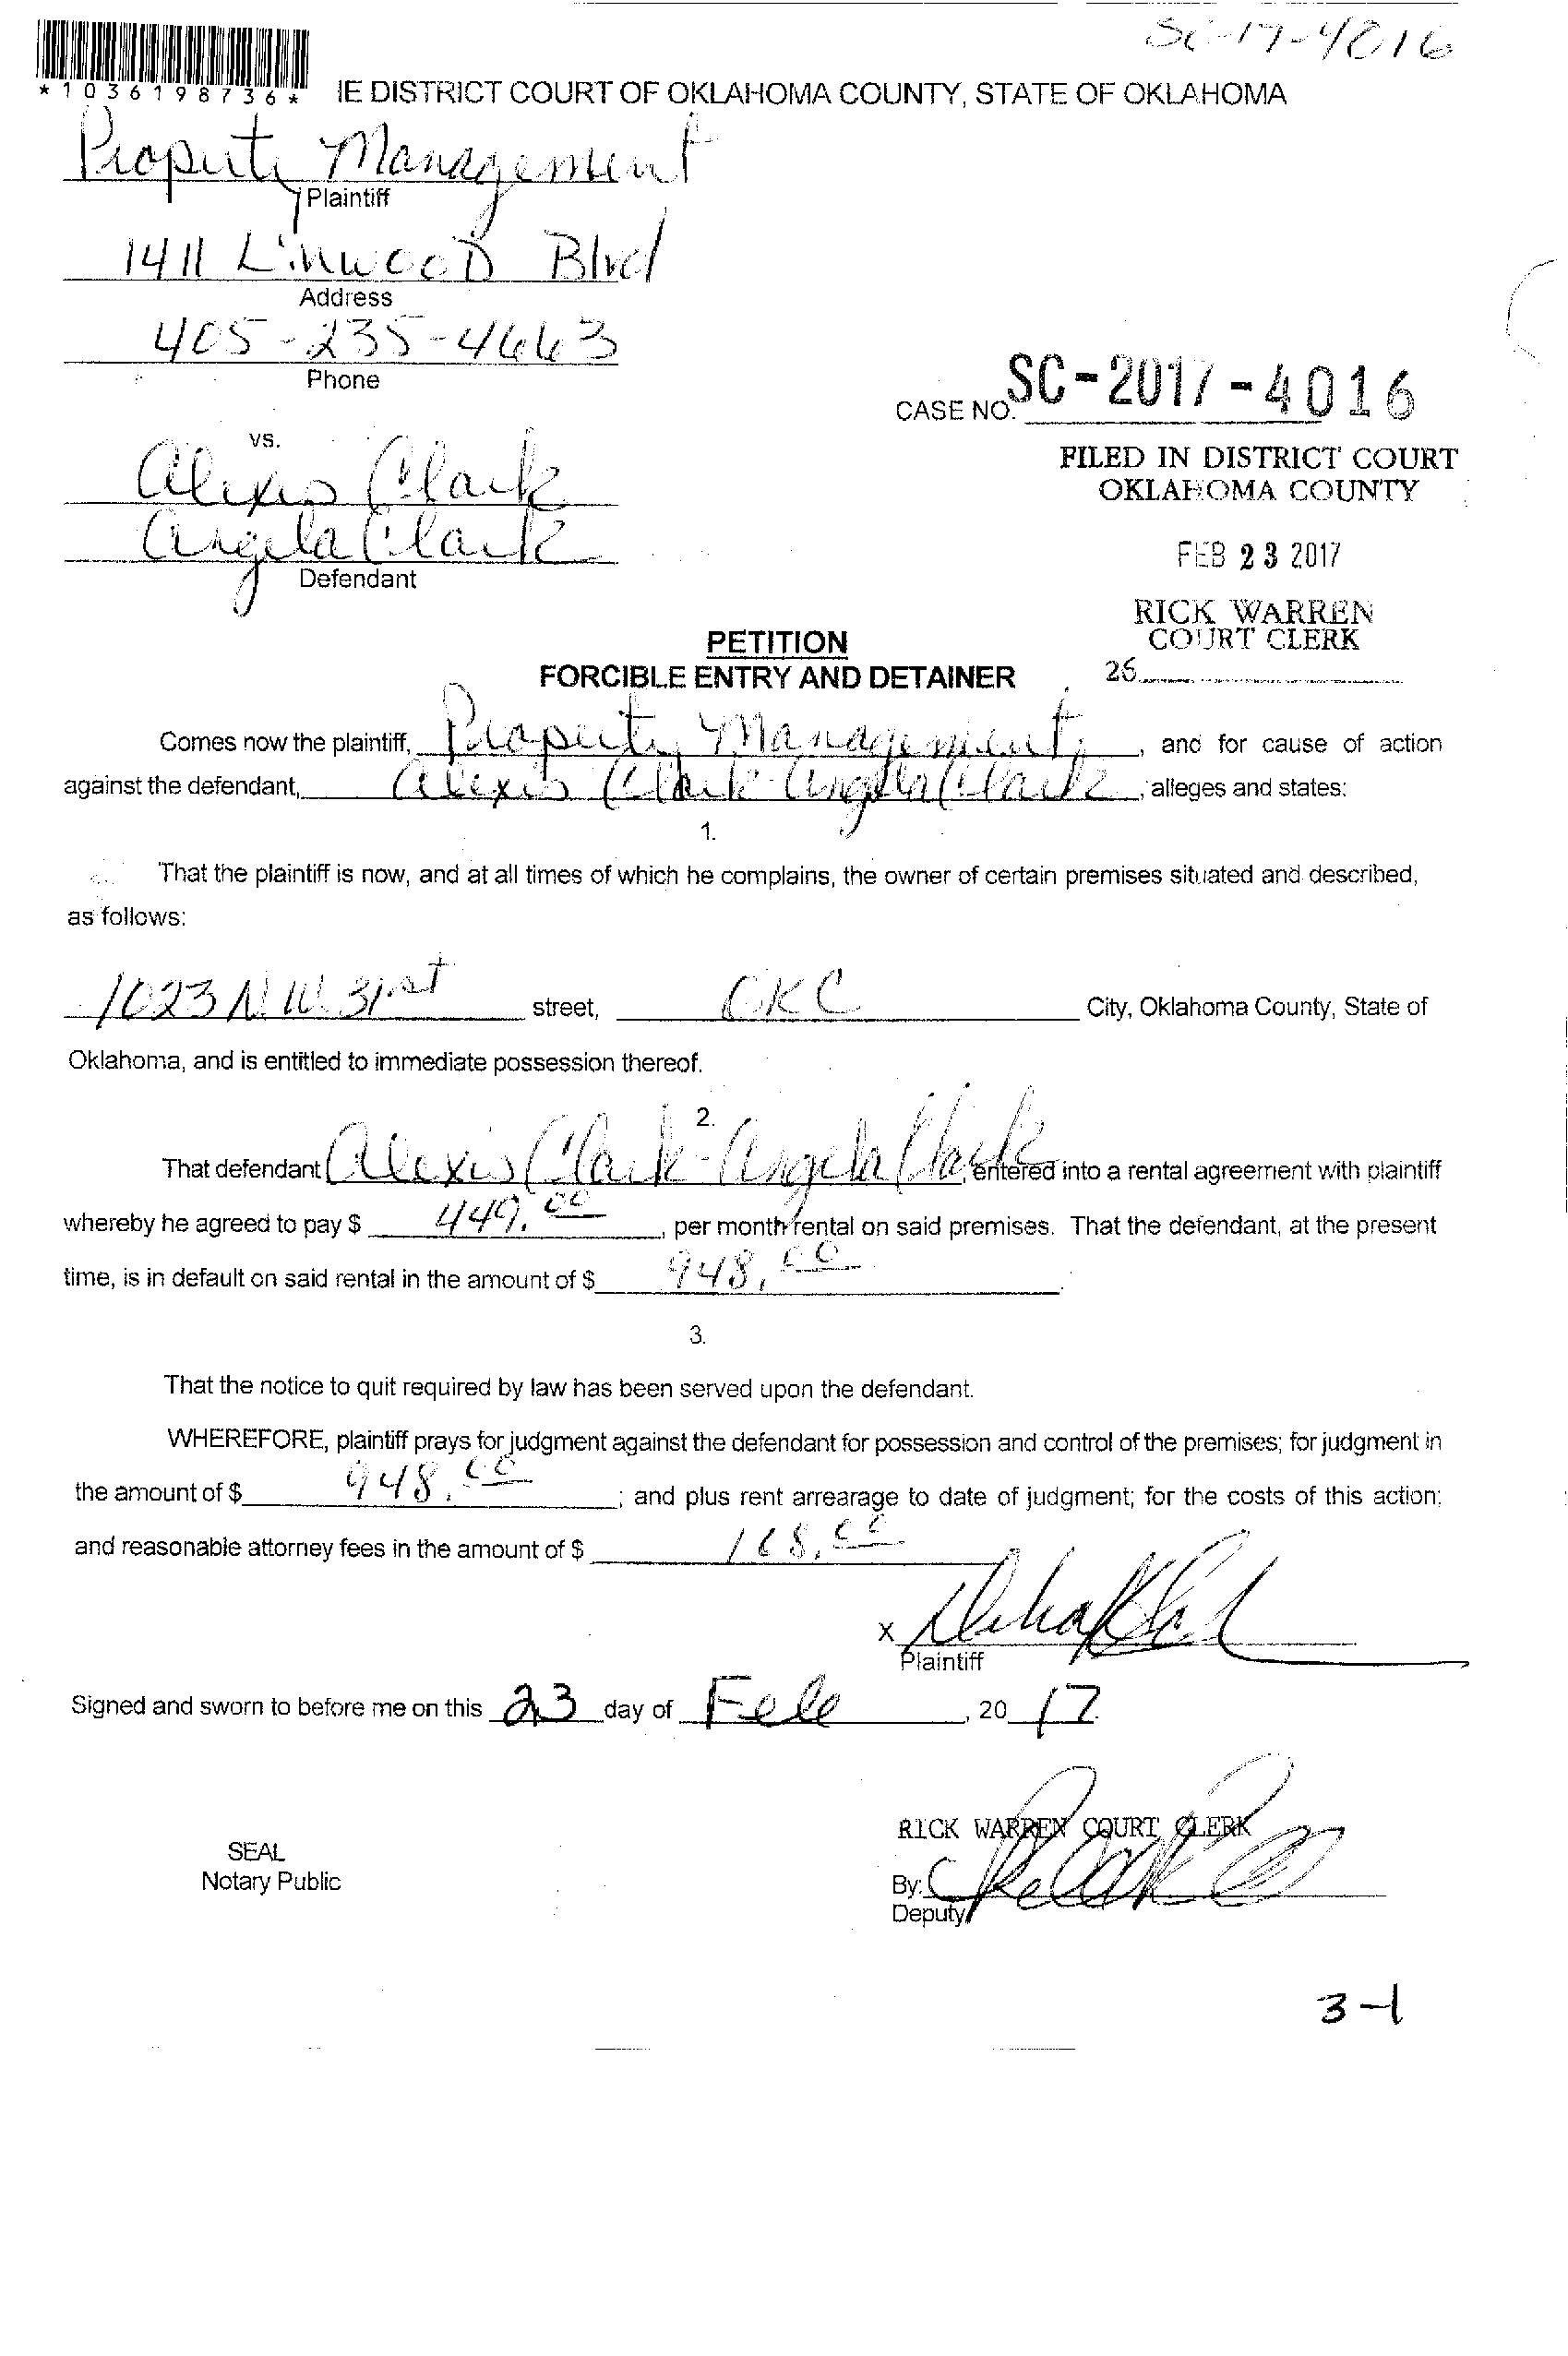 SC-17-4016
*1036198736*
IE DISTRICT COURT OF OKLAHOMA COUNTY, STATE OF OKLAHOMA
Property Management
Plaintiff
1411 LinwooD Blvd
Address
405-235-4663
Phone
CASE NO. SC-2017-4016
vs.
FILED IN DISTRICT COURT
OKLAHOMA COUNTY
Alexis Clark
Angela Clark
FEB 23 2017
Defendant
RICK WARREN
COURT CLERK
PETITION
26
FORCIBLE ENTRY AND DETAINER
Comes now the plaintiff, Property Management, and for cause of action
against the defendant, Alexis Clark - Angela Clark, alleges and states:
1.
That the plaintiff is now, and at all times of which he complains, the owner of certain premises situated and described,
as follows:
1023 N.W. 31st street, OKC City, Oklahoma County, State of
Oklahoma, and is entitled to immediate possession thereof.
2.
That defendant Alexis Clark - Angela Clark, entered into a rental agreement with plaintiff
whereby he agreed to pay $ 449.00, per month rental on said premises. That the defendant, at the present
time, is in default on said rental in the amount of $ 948.00.
3.
That the notice to quit required by law has been served upon the defendant.
WHEREFORE, plaintiff prays for judgment against the defendant for possession and control of the premises; for judgment in
the amount of $ 948.00; and plus rent arrearage to date of judgment; for the costs of this action;
and reasonable attorney fees in the amount of $ 168.00
X
Plaintiff
Signed and sworn to before me on this 23 day of Feb, 20 17.
RICK WARREN COURT CLERK
SEAL
Notary Public
By:
Deputy
3-1